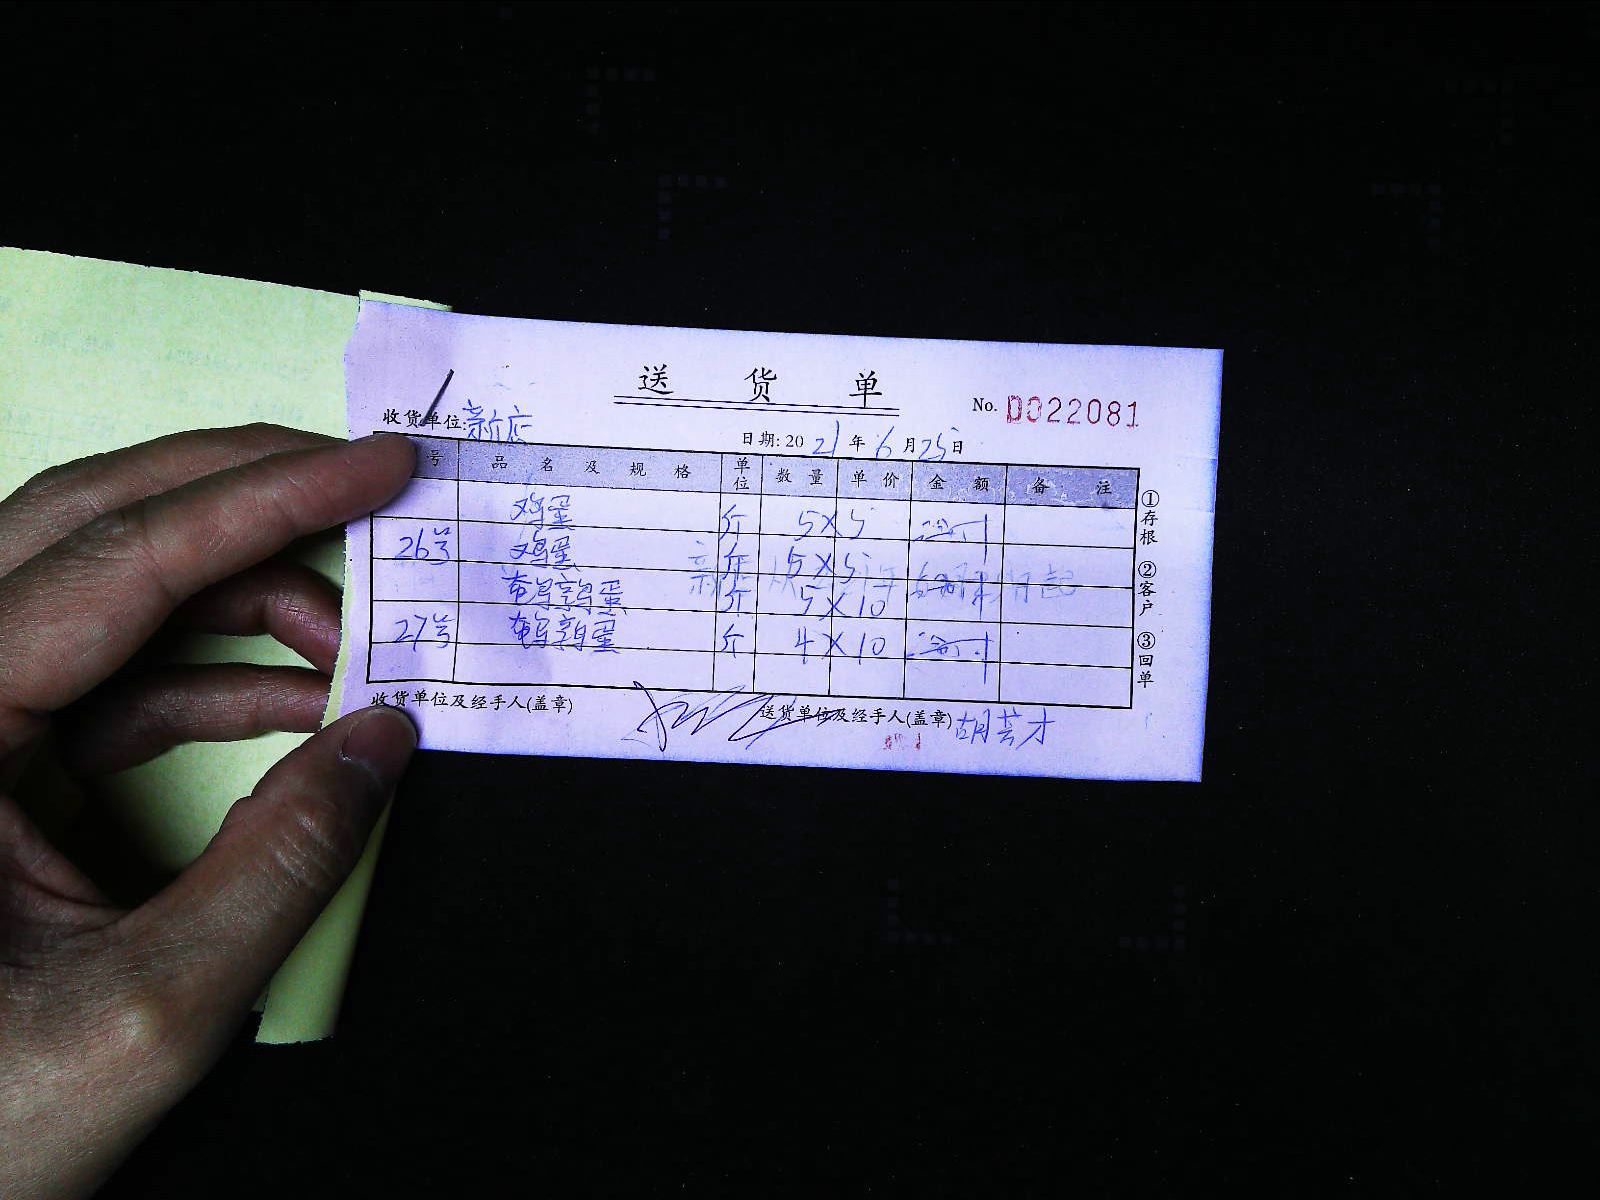 送 货 单
No. 0022081
收货单位:新店
日期: 2021年6月25日
号 品名及规格 单位 数量 单价 金额 备注
鸡蛋 斤 5×5
26号 鸡蛋 斤 5×5
鹌鹑蛋 斤 5×10
27号 鹌鹑蛋 斤 4×10
①存根
②客户
③回单
收货单位及经手人(盖章)
送货单位及经手人(盖章) 胡芸才